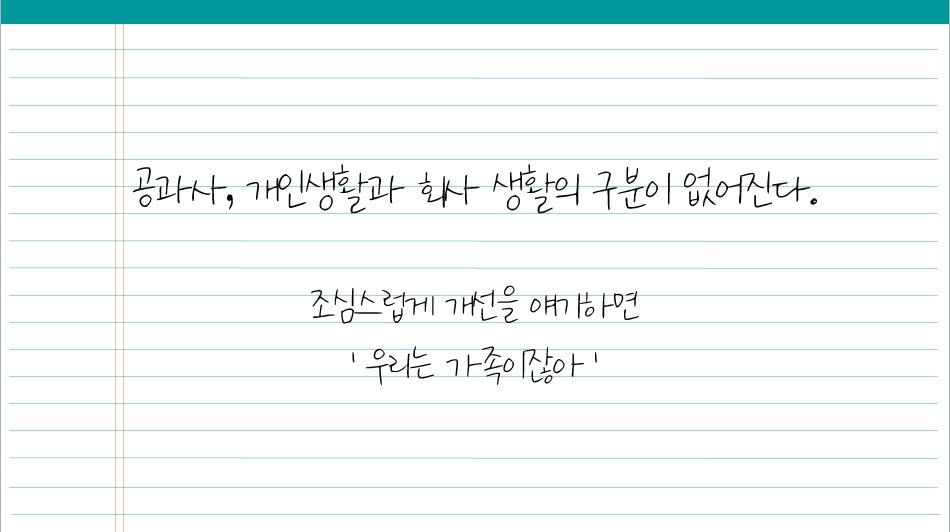 공과사, 개인생활과 회사 생활의 구분이 없어진다.
조심스럽게 개선을 얘기하면
'우리는 가족이잖아'